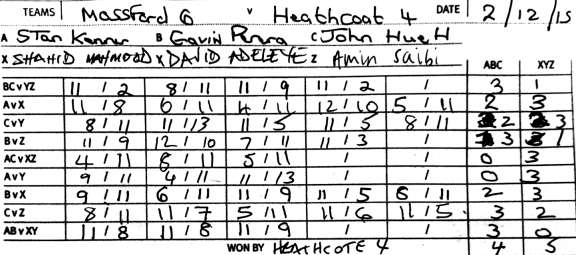 TEAMS Massford G v Heathcoat 4 DATE 2/12/15
A Stan B Gavin C John Hue H
X SHAHID MAHMOOD X DAVID ADELEYE Z Amin Saibi ABC XYZ
BCvYZ 11/2 8/11 11/9 11/2 / 3 1
AvX 11/8 6/11 4/11 12/10 5/11 2 3
CvY 8/11 11/13 11/5 11/5 8/11 2 3
BvZ 11/9 12/10 7/11 11/3 / 3 1
ACvXZ 4/11 6/11 5/11 / / 0 3
AvY 9/11 4/11 11/13 / / 0 3
BvX 9/11 6/11 11/9 11/5 8/11 2 3
CvZ 8/11 11/7 5/11 11/6 11/5 3 2
ABvXY 11/8 11/8 11/9 / / 3 0
WON BY HEATHCOTE 4 4 5